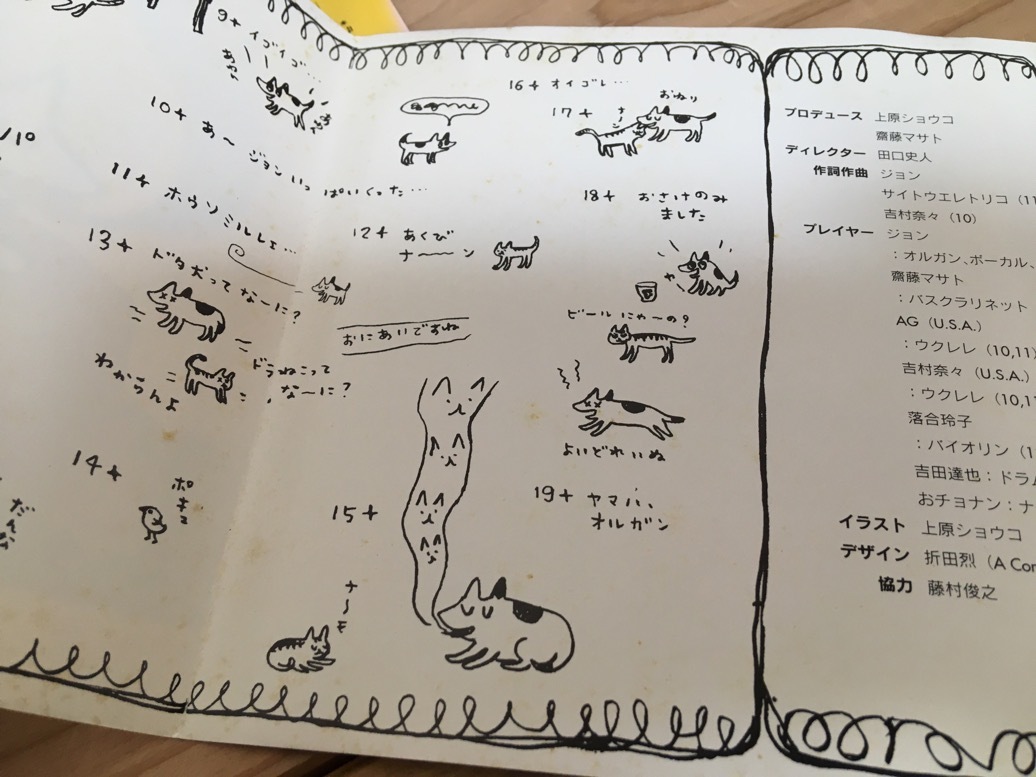 9+ イゴイゴ…
10+ あ〜 ジョンいっぱいくった…
11+ ホウソミルしェ…
13+ ドタ犬ってな〜に?
ドラねこって
な〜に?
わからんよ
14+
だんな
16+ オイゴレ…
17+
ナ〜ン
おかり
12+ あくび
ナ〜〜ン
おにあいですね
15+
ナ〜モ
18+ おさけのみ
ました
ビールにゃ〜の?
よいどれいぬ
19+ ヤマハ、
オルガン
プロデュース 上原ショウコ
齋藤マサト
ディレクター 田口史人
作詞作曲 ジョン
サイトウエレトリコ (11
吉村奈々 (10)
プレイヤー ジョン
:オルガン、ボーカル、
齋藤マサト
:バスクラリネット
AG (U.S.A.)
:ウクレレ (10,11)
吉村奈々 (U.S.A.)
:ウクレレ (10,1
落合玲子
:バイオリン (1
吉田達也:ドラム
おチョナン:ナ
イラスト 上原ショウコ
デザイン 折田烈 (A Con
協力 藤村俊之